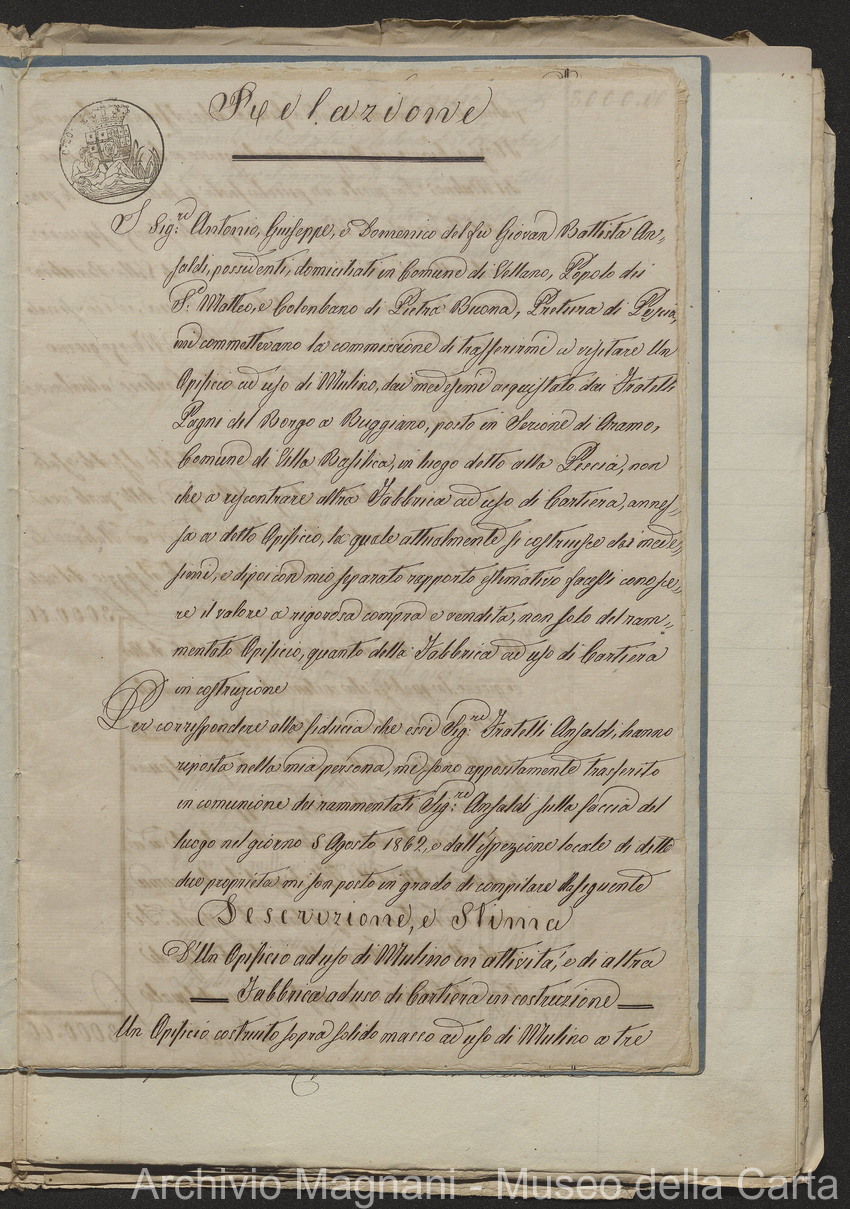 Relazione
I Sig.ri Antonio, Giuseppe, e Domenico del fu Giovan Battista An-
saldi, possidenti, domiciliati in Comune di Vellano, Popolo dei
S.i Matteo, e Colonbano di Pietra Buona, Pretura di Pescia,
mi commettevano la commissione di trasferirmi a visitare Un
Opificio ad uso di Mulino, dai medesimi acquistato dai Fratelli
Pagni del Borgo a Buggiano, posto in Sezione di Aramo,
Comune di Villa Basilica, in luogo detto alla Pescia, non
che a riscontrare altra Fabbrica ad uso di Cartiera, annes-
sa a detto Opificio, la quale attualmente si costruisce dai mede-
simi, e dipoi con mio separato rapporto estimativo facessi conosce-
re il valore a rigorosa compra e vendita, non solo del ram-
mentato Opificio, quanto della Fabbrica ad uso di Cartiera
in costruzione
Per corrispondere alla fiducia che essi Sig.ri Fratelli Ansaldi, hanno
riposta nella mia persona, mi sono appositamente trasferito
in comunione dei rammentati Sig.ri Ansaldi sulla faccia del
luogo nel giorno 8 Agosto 1862, e dall'ispezione locale di dette
due proprietà mi son posto in grado di compilare la seguente
Descrizione, e Stima
D'Un Opificio ad uso di Mulino in attività, e di altra
Fabbrica ad uso di Cartiera in costruzione
Un Opificio costruito sopra solido masso ad uso di Mulino a tre
Archivio Magnani - Museo della Carta